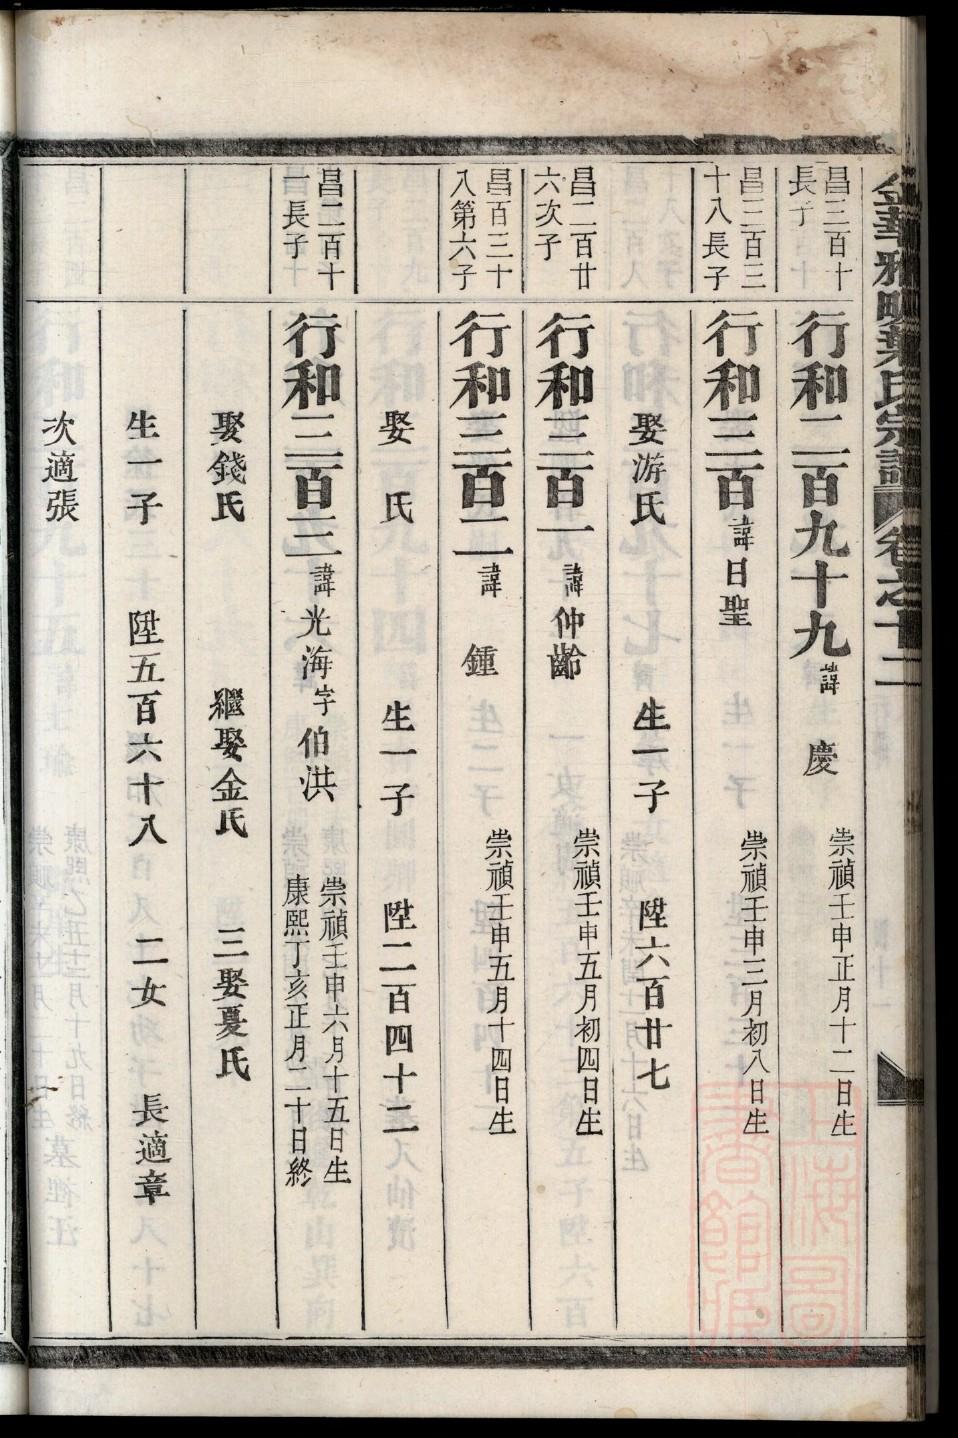 金華雅畈葉氏宗譜 卷之十二
昌三百十
長子
行和二百九十九 諱 慶 崇禎壬申正月十二日生
昌三百三
十八長子
行和三百 諱日聖 崇禎壬申三月初八日生
娶游氏 生一子 陞六百廿七
昌二百廿
六次子
行和三百一 諱仲齡 崇禎壬申五月初四日生
昌百三十
八第六子
行和三百二 諱 鍾 崇禎壬申五月十四日生
娶 氏 生一子 陞二百四十二
昌二百十
一長子
行和三百三 諱光海字伯洪
崇禎壬申六月十五日生
康熙丁亥正月二十日終
娶錢氏 繼娶金氏 三娶夏氏
生一子 陞五百六十八 二女 長適章
次適張
上海圖書館藏